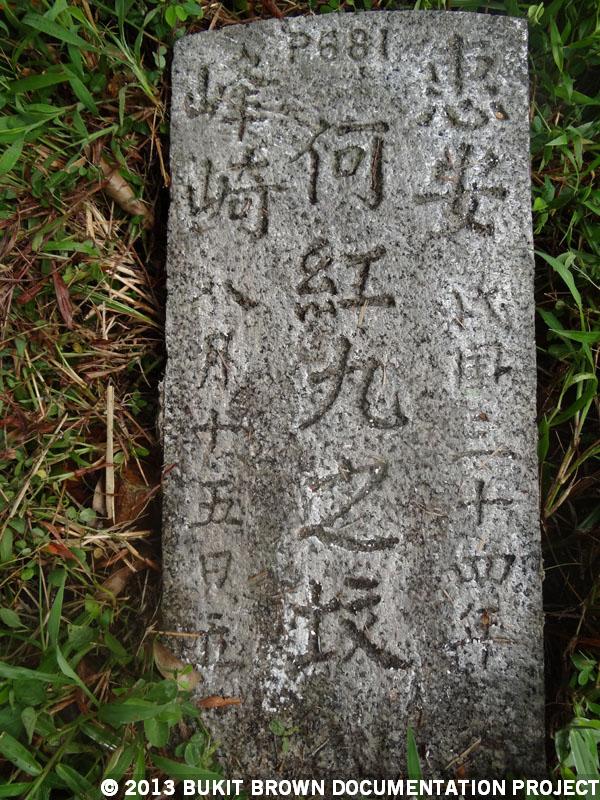 P681
惠安 民国三十四年
何紅九之坟
峰崎 八月十五日立
© 2013 BUKIT BROWN DOCUMENTATION PROJECT